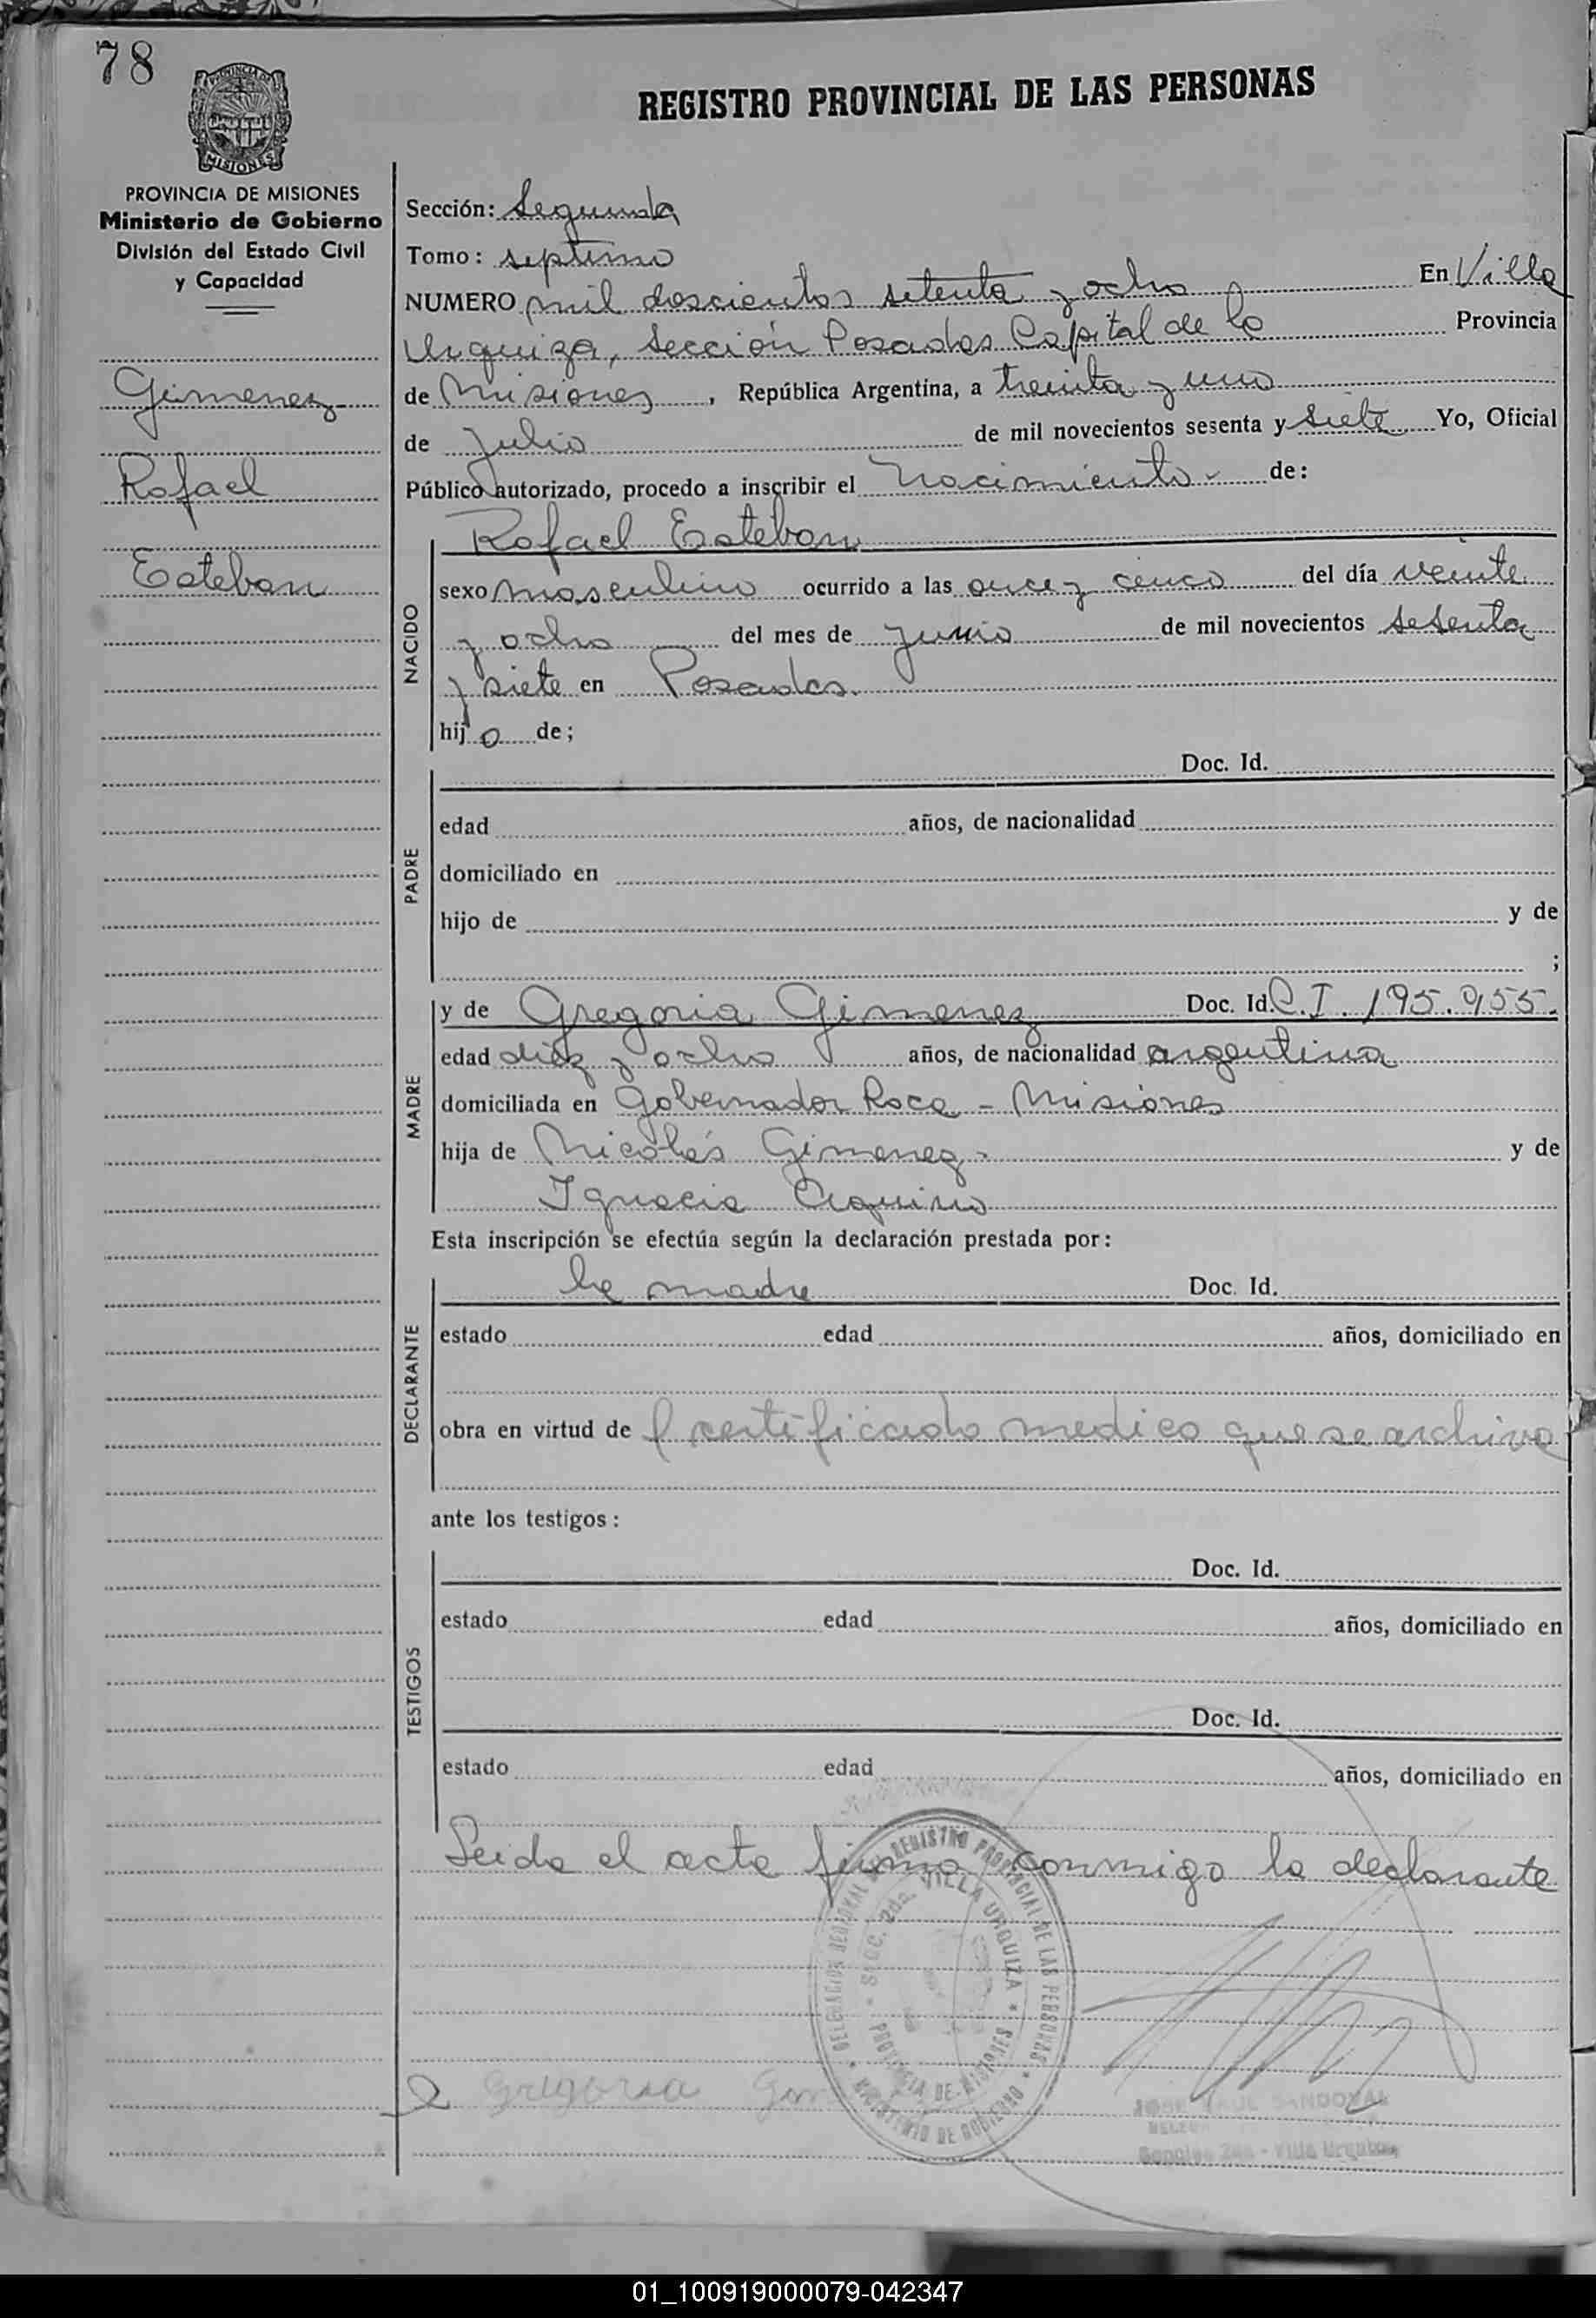 78
PROVINCIA DE MISIONES
REGISTRO PROVINCIAL DE LAS PERSONAS
PROVINCIA DE MISIONES
Ministerio de Gobierno
División del Estado Civil
y Capacidad
Gimenez
Rafael
Esteban
Sección: Segunda
Tomo: septimo
NUMERO mil doscientos setenta y ocho En Villa
Urquiza, Sección Posadas Capital de la Provincia
de Misiones, República Argentina, a treinta y uno
de Julio de mil novecientos sesenta y siete Yo, Oficial
Público autorizado, procedo a inscribir el Nacimiento - de:
NACIDO
Rafael Esteban
sexo masculino ocurrido a las once y cinco del día veinte
y ocho del mes de junio de mil novecientos sesenta
y siete en Posadas.
hijo de;
PADRE
Doc. Id.
edad años, de nacionalidad
domiciliado en
hijo de y de
;
MADRE
y de Gregoria Gimenez Doc. Id. C.I. 195.955.
edad diez y ocho años, de nacionalidad argentina
domiciliada en Gobernador Roca - Misiones
hija de Nicolás Gimenez - y de
Ignacia Aquino
Esta inscripción se efectúa según la declaración prestada por:
DECLARANTE
la madre Doc. Id.
estado edad años, domiciliado en
obra en virtud de certificado medico que se archiva
ante los testigos:
TESTIGOS
Doc. Id.
estado edad años, domiciliado en
Doc. Id.
estado edad años, domiciliado en
Leida el acta firma conmigo la declarante
DELEGACION REGIONAL DEL REGISTRO PROVINCIAL DE LAS PERSONAS
SECC. 2da. VILLA URQUIZA
PROVINCIA DE MISIONES
MINISTERIO DE GOBIERNO
Gregoria
JOSE RAUL SANDOVAL
Villa Urquiza
01_100919000079-042347